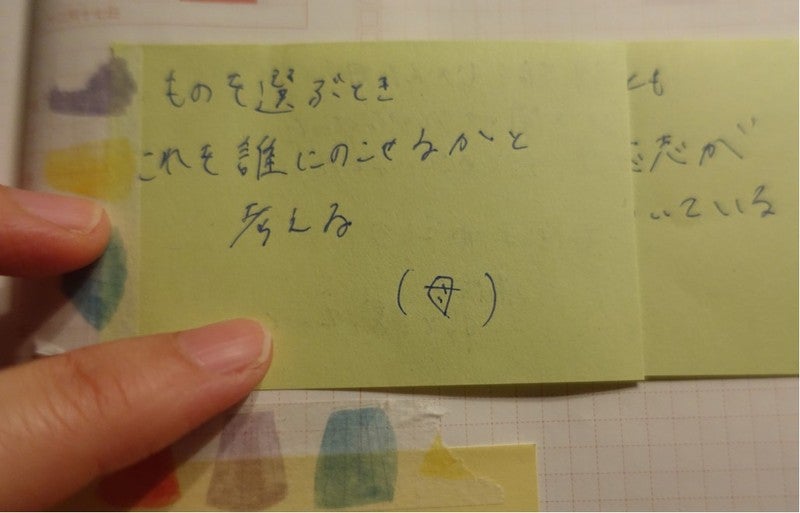 ものを選ぶとき
これを誰にのこせるかと
考える
(母)
とも
が
いている